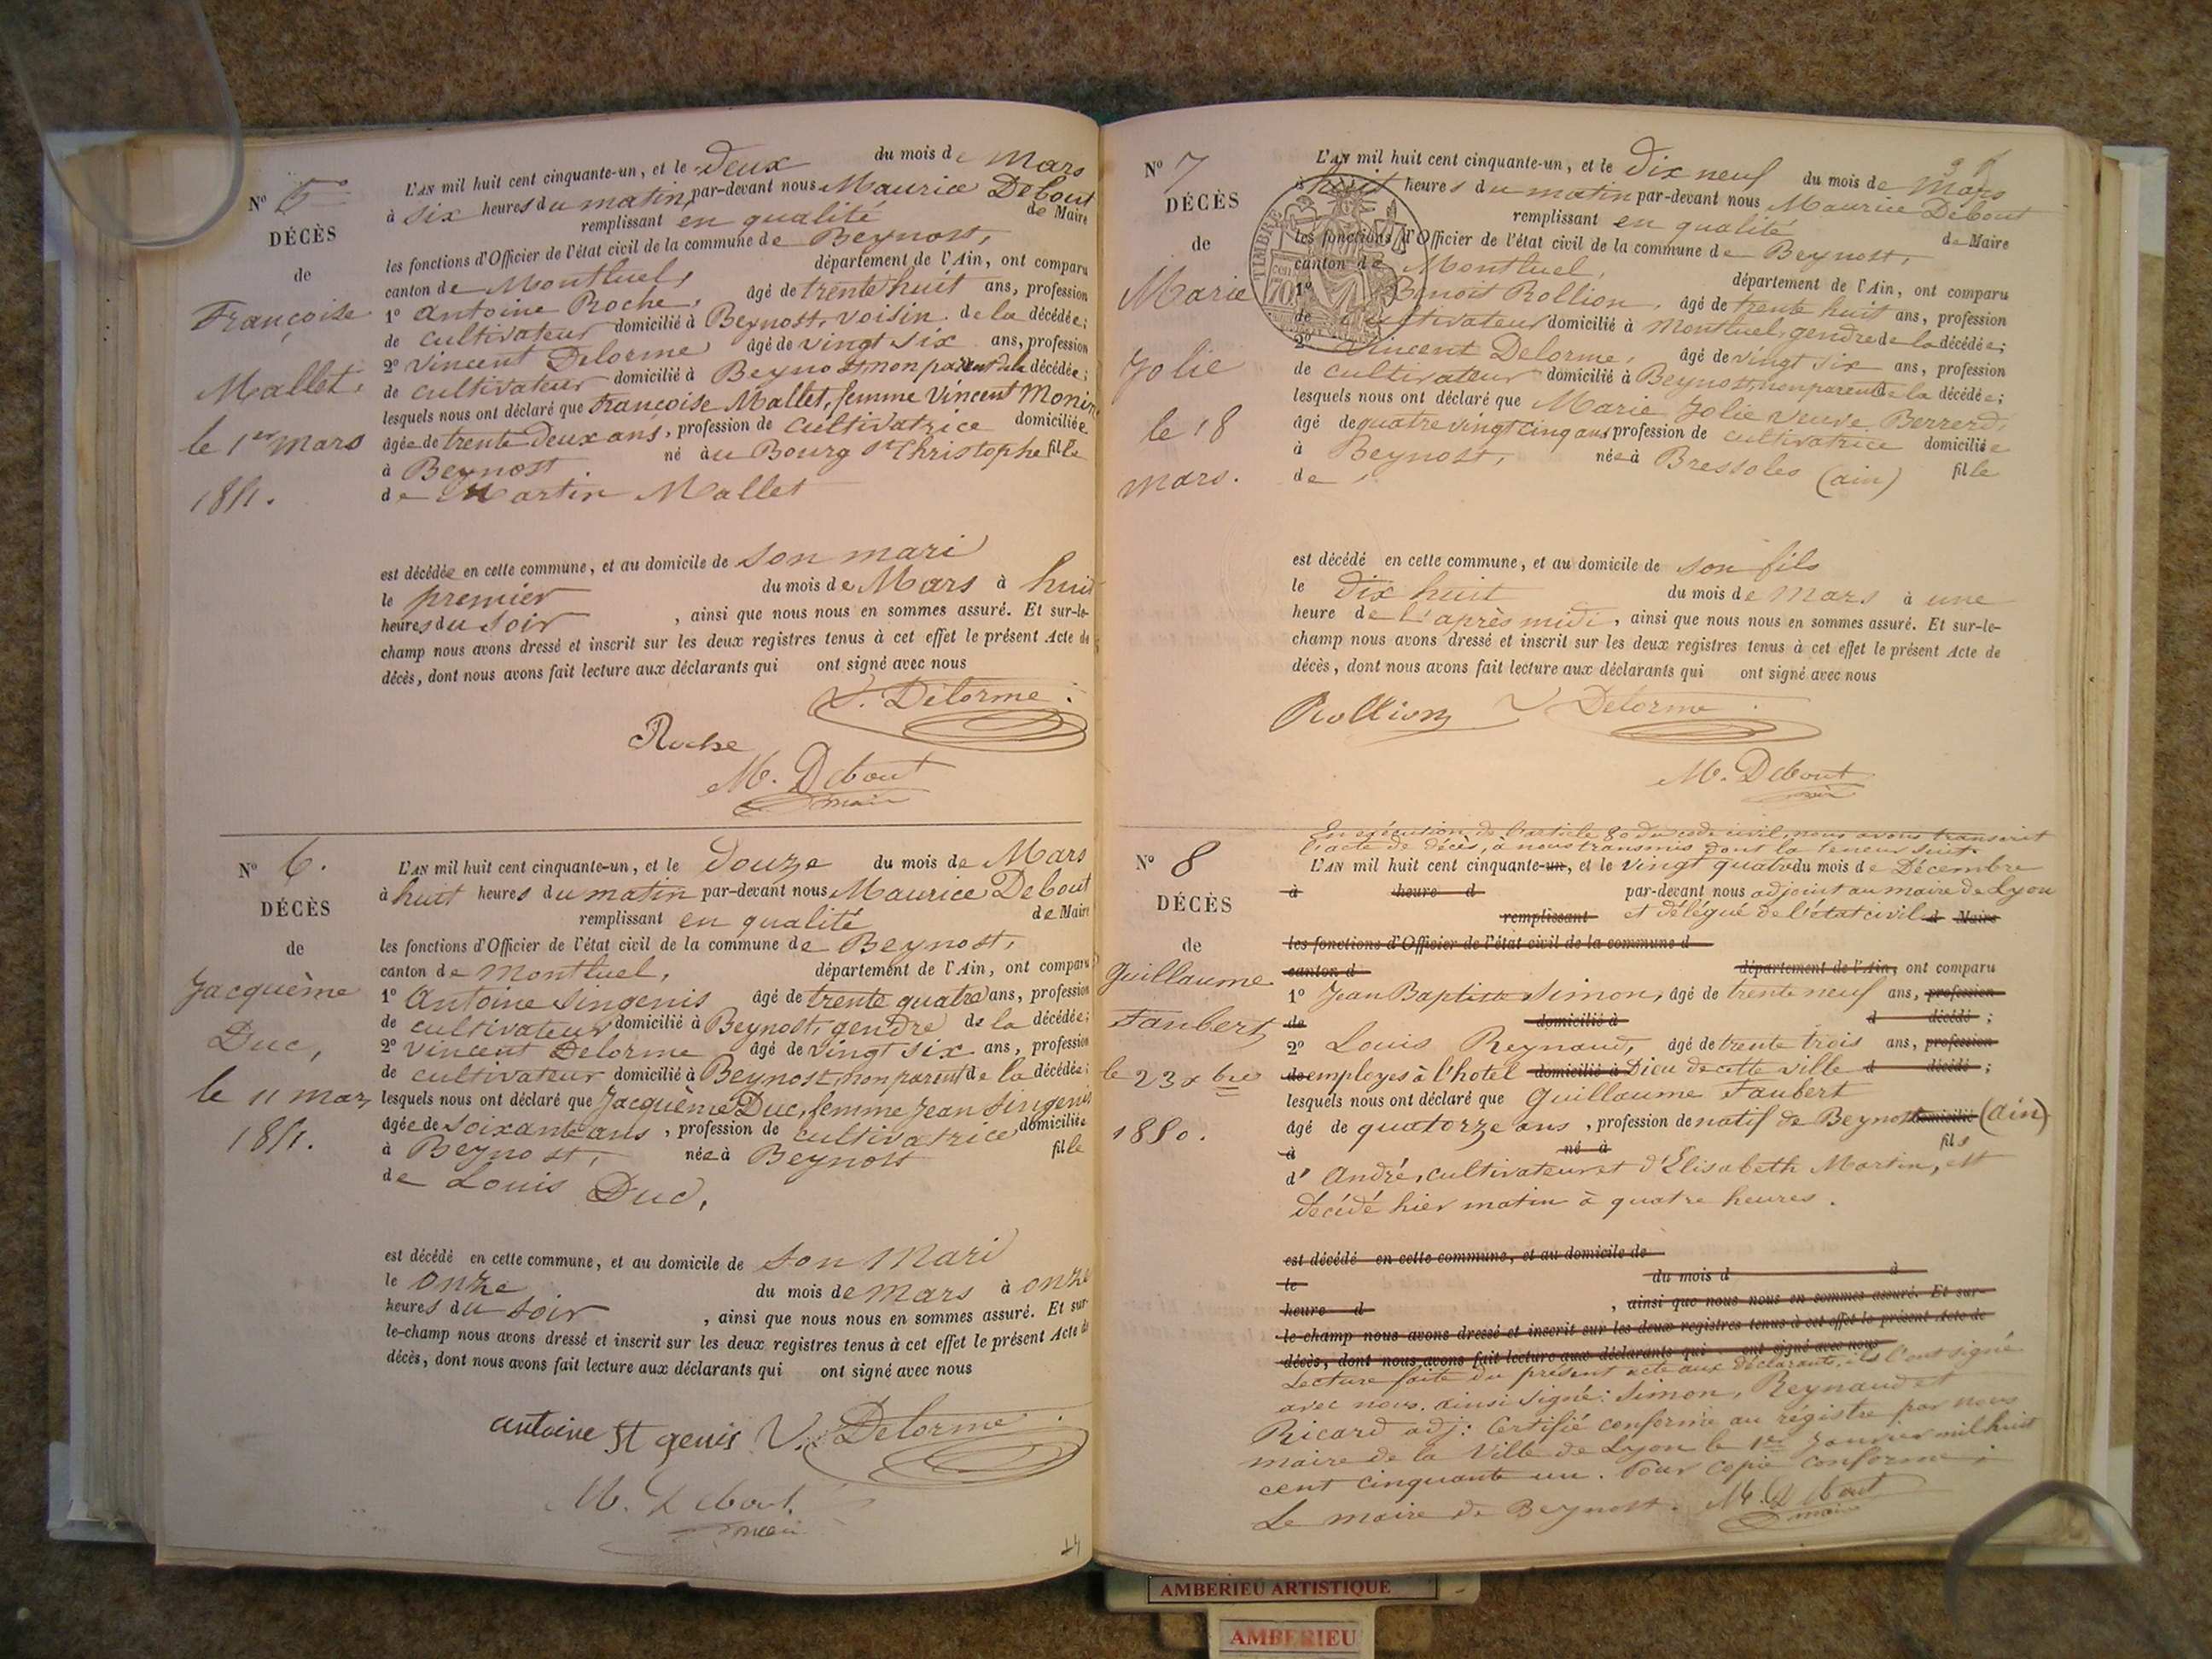 N° 5
DÉCÈS
de
Françoise
Mallet,
le 1er mars
1851.
L'AN mil huit cent cinquante-un, et le Deux du mois de Mars
à six heures du matin, par-devant nous Maurice Debout
remplissant en qualité de Maire
les fonctions d'Officier de l'état civil de la commune de Beynost,
canton de Montluel, département de l'Ain, ont comparu
1° Antoine Roche, âgé de trente huit ans, profession
de cultivateur domicilié à Beynost, voisin de la décédée;
2° Vincent Delorme âgé de vingt six ans, profession
de cultivateur domicilié à Beynost, non parent de la décédée;
lesquels nous ont déclaré que Françoise Mallet, femme Vincent Monin
âgée de trente Deux ans, profession de cultivatrice domiciliée
à Beynost né àu Bourg St Christophe fille
de Martin Mallet
est décédée en cette commune, et au domicile de son mari
le premier du mois de Mars à huit
heures du soir, ainsi que nous nous en sommes assuré. Et sur-le-
champ nous avons dressé et inscrit sur les deux registres tenus à cet effet le présent Acte de
décès, dont nous avons fait lecture aux déclarants qui ont signé avec nous
V. Delorme
Roche
M. Debout
maire
N° 6.
DÉCÈS
de
Jacquème
Duc,
le 11 mars
1851.
L'AN mil huit cent cinquante-un, et le Douze du mois de Mars
à huit heures du matin par-devant nous Maurice Debout
remplissant en qualité de Maire
les fonctions d'Officier de l'état civil de la commune de Beynost,
canton de Montluel, département de l'Ain, ont comparu
1° Antoine Singenis âgé de trente quatre ans, profession
de cultivateur domicilié à Beynost, gendre de la décédée;
2° Vincent Delorme âgé de vingt six ans, profession
de cultivateur domicilié à Beynost, non parent de la décédée;
lesquels nous ont déclaré que Jacquème Duc, femme Jean Singenis
âgée de soixante ans, profession de cultivatrice domiciliée
à Beynost, née à Beynost fille
de Louis Duc,
est décédé en cette commune, et au domicile de son Mari
le onze du mois de mars à onze
heures du soir, ainsi que nous nous en sommes assuré. Et sur-
le-champ nous avons dressé et inscrit sur les deux registres tenus à cet effet le présent Acte de
décès, dont nous avons fait lecture aux déclarants qui ont signé avec nous
antoine St genis V. Delorme
M. Debout
maire
N° 7
DÉCÈS
de
Marie
Jolie
le 18
mars.
L'AN mil huit cent cinquante-un, et le Dix neuf du mois de Mars
à huit heures du matin par-devant nous Maurice Debout
remplissant en qualité de Maire
les fonctions d'Officier de l'état civil de la commune de Beynost,
canton de Montluel, département de l'Ain, ont comparu
1° Benoit Rollion, âgé de trente huit ans, profession
de cultivateur domicilié à Montluel, gendre de la décédée;
2° Vincent Delorme, âgé de vingt six ans, profession
de cultivateur domicilié à Beynost, non parent de la décédée;
lesquels nous ont déclaré que Marie Jolie veuve Berrerd,
âgé de quatre vingt cinq ans profession de cultivatrice domiciliée
à Beynost, née à Bressoles (ain) fille
de
est décédé en cette commune, et au domicile de son fils
le Dix huit du mois de Mars à une
heure de l'après midi, ainsi que nous nous en sommes assuré. Et sur-le-
champ nous avons dressé et inscrit sur les deux registres tenus à cet effet le présent Acte de
décès, dont nous avons fait lecture aux déclarants qui ont signé avec nous
Rollion V Delorme
M. Debout
TIMBRE
70
N° 8
DÉCÈS
de
Guillaume
Faubert,
le 23 xbre
1850.
En exécution de l'article 80 du code civil, nous avons transcrit
l'acte de décès, à nous transmis dont la teneur suit.
L'AN mil huit cent cinquante-un, et le vingt quatre du mois de Décembre
à heure d par-devant nous adjoint au maire de Lyon
remplissant et délégué de l'état civil d Maire
les fonctions d'Officier de l'état civil de la commune d
canton d département de l'Ain, ont comparu
1° Jean Baptiste Simon, âgé de trente neuf ans, profession
de domicilié à d décédé ;
2° Louis Reynaud, âgé de trente trois ans, profession
de employés à l'hotel domicilié à Dieu de cette ville d décédé ;
lesquels nous ont déclaré que Guillaume Faubert
âgé de quatorze ans, profession de natif de Beynost domicilié (Ain)
à né à fils
d' André, cultivateur et d'Elisabeth Martin, est
décédé hier matin à quatre heures.
est décédé en cette commune, et au domicile de
le du mois d à
heure d , ainsi que nous nous en sommes assuré. Et sur-
le-champ nous avons dressé et inscrit sur les deux registres tenus à cet effet le présent Acte de
décès, dont nous avons fait lecture aux déclarants qui ont signé avec nous
Lecture faite du présent acte aux déclarants, ils l'ont signé
avec nous. ainsi signé: Simon, Reynaud et
Ricard adj: Certifié conforme au régistre par nous
maire de la Ville de Lyon le 1er Janvier mil huit
cent cinquante un. Pour copie conforme;
Le maire de Beynost. M. Debout
maire
AMBERIEU ARTISTIQUE
AMBERIEU